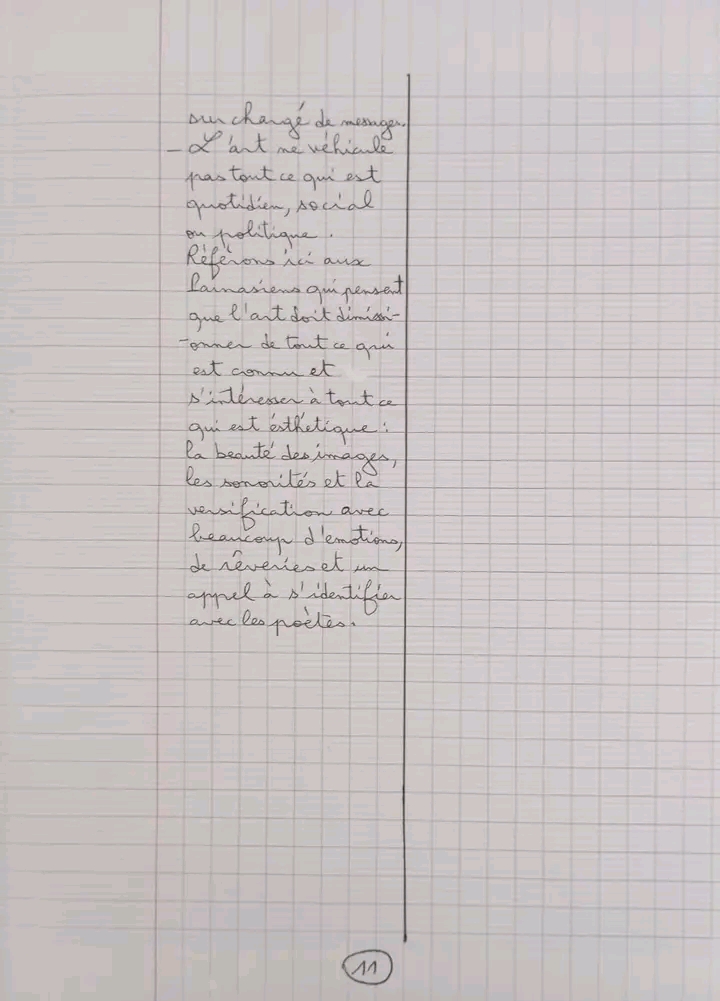 surchargé de messages.
- L'art ne véhicule
pas tout ce qui est
quotidien, social
ou politique.
Référons ici aux
Parnasiens qui pensent
que l'art doit dimissi-
-onner de tout ce qui
est connu et
s'intéresser à tout ce
qui est ésthétique :
la beauté des images,
les sonorités et la
versification avec
beaucoup d'emotions,
de rêveries et un
appel à s'identifier
avec les poètes.
11